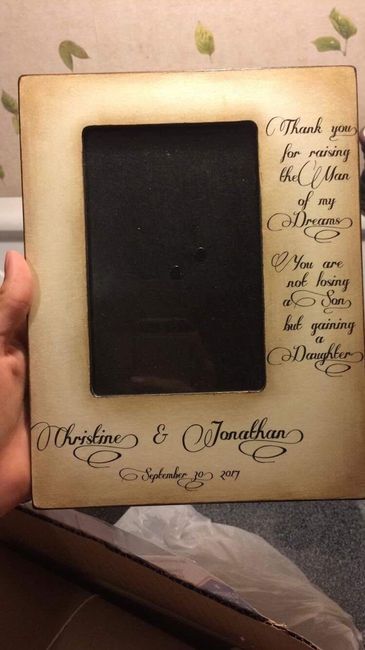 Thank you
for raising
the Man
of my
Dreams
You are
not losing
a Son
but gaining
a
Daughter
Christine & Jonathan
September 30 2017